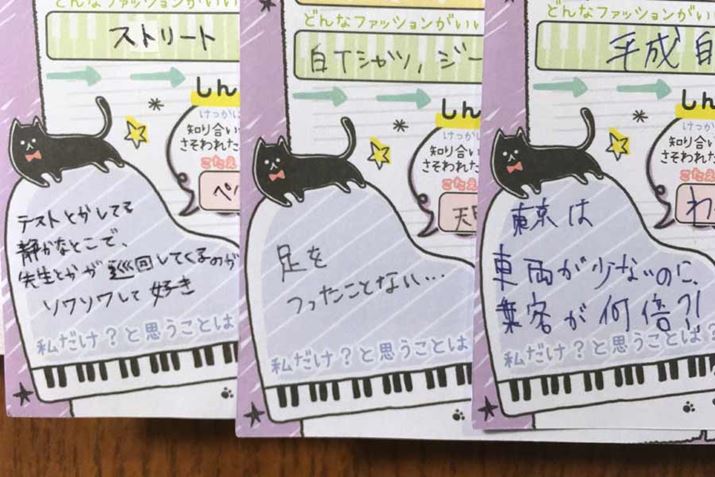 ストリート
しん
知り合い
さそわれた
こたえ
ペ
テストとかしてる
静かなとこで、
先生とかが巡回してくるのが
ソワソワして好き
私だけ？と思うことは
どんなファッションがいい
白Tシャツ，ジー
しん
けっか
知り合い
さそわれた
こたえ
天
足を
つったことない…
私だけ？と思うことは
どんなファッションがい
平成白
しん
けっか
知り合い
さそわれた
こたえ
わ
東京は
車両が少ないのに、
乗客が何倍?!
私だけ？と思うことは?